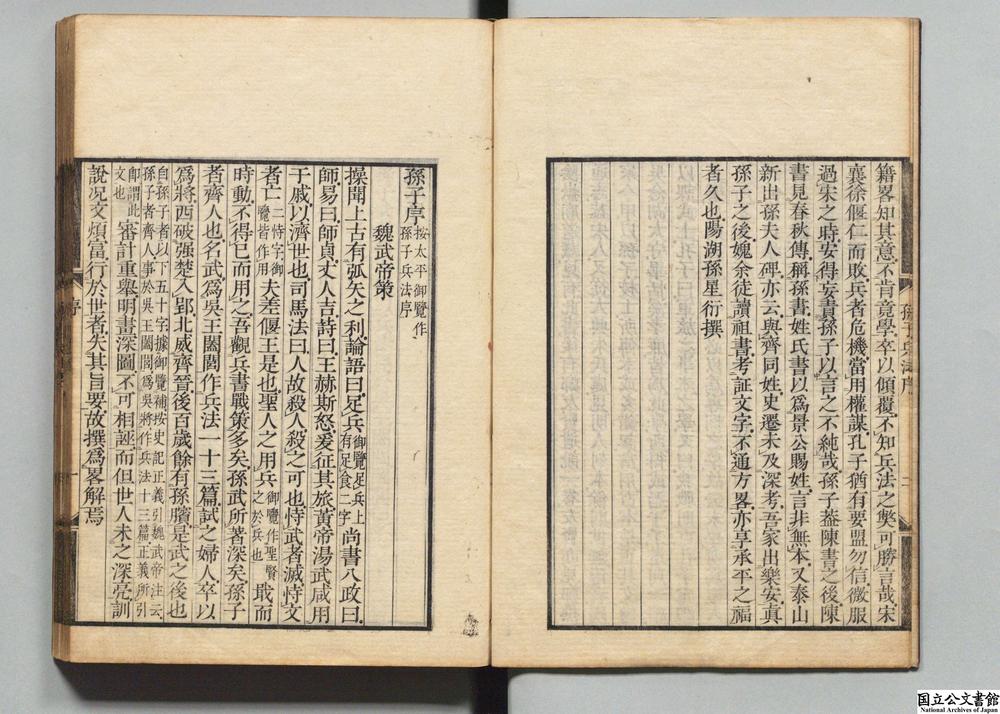 籍畧知其意不肯竟學卒以傾覆不知兵法之弊可勝言哉宋
襄徐偃仁而敗兵者危機當用權謀孔子猶有要盟勿信微服
過宋之時安得妄責孫子以言之不純哉孫子葢陳書之後陳
書見春秋傳稱孫書姓氏書以爲景公賜姓言非無本又泰山
新出孫夫人碑亦云與齊同姓史遷未及深考吾家出樂安眞
孫子之後媿余徒讀祖書考証文字不通方畧亦享承平之福
者久也陽湖孫星衍撰
孫子兵法序
二
孫子序按太平御覽作孫子兵法序
魏武帝策
操聞上古有弧矢之利論語曰足兵御覽足兵上有足食二字尚書八政曰
師易曰師貞丈人吉詩曰王赫斯怒爰征其旅黃帝湯武咸用
干戚以濟世也司馬法曰人故殺人殺之可也恃武者滅恃文
者亡二恃字御覽皆作用夫差偃王是也聖人之用兵御覽作聖賢之於兵也戢而
時動不得已而用之吾觀兵書戰策多矣孫武所著深矣孫子
者齊人也名武爲吳王闔閭作兵法一十三篇試之婦人卒以
爲將西破强楚入郢北威齊晉後百歲餘有孫臏是武之後也
自孫子者以下五十字據御覽補按史記正義引魏武帝注云孫子者齊人事於吳王闔閭爲吳將作兵法十三篇正義所引
卽謂此文也審計重舉明畫深圖不可相誣而但世人未之深亮訓
說況文煩富行於世者失其旨要故撰爲畧解焉
序
国立公文書館
National Archives of Japan